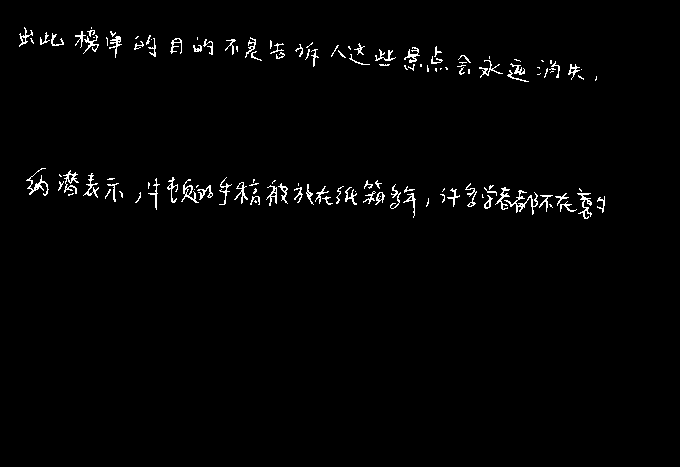 出此榜单的目的不是告诉人这些景点会永远消失,
纳潜表示,牛顿的手稿被放在纸箱多年,许多学者都不在意